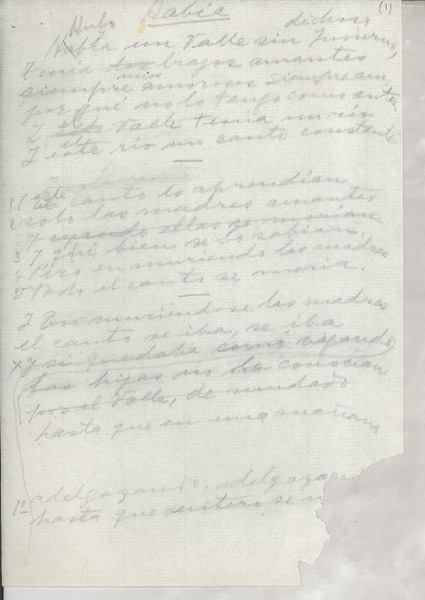 Había
(1)
Hubo dichoso
Había un Valle sin Invierno,
Tenía los brazos amantes
mios
siempre amorosos siempre sin
por qué no lo tengo como antes.
Y el
Y este Valle tenía un río
el
Y este río un canto constante
1 Y este
el canto lo aprendían
2 solo las madres amantes
y cuando ellas se morían
3 Y qué bien se lo sabían,
4 Pero en muriendo las madres
5 Todo el canto se moría.
Y En muriéndose las madres
el canto se iba, se iba
X y si quedaba como vagando
las hijas no lo conocían
por el Valle, de mudado
hasta que en una mañana
1º adelgazando, adelgaza
hasta que entero se